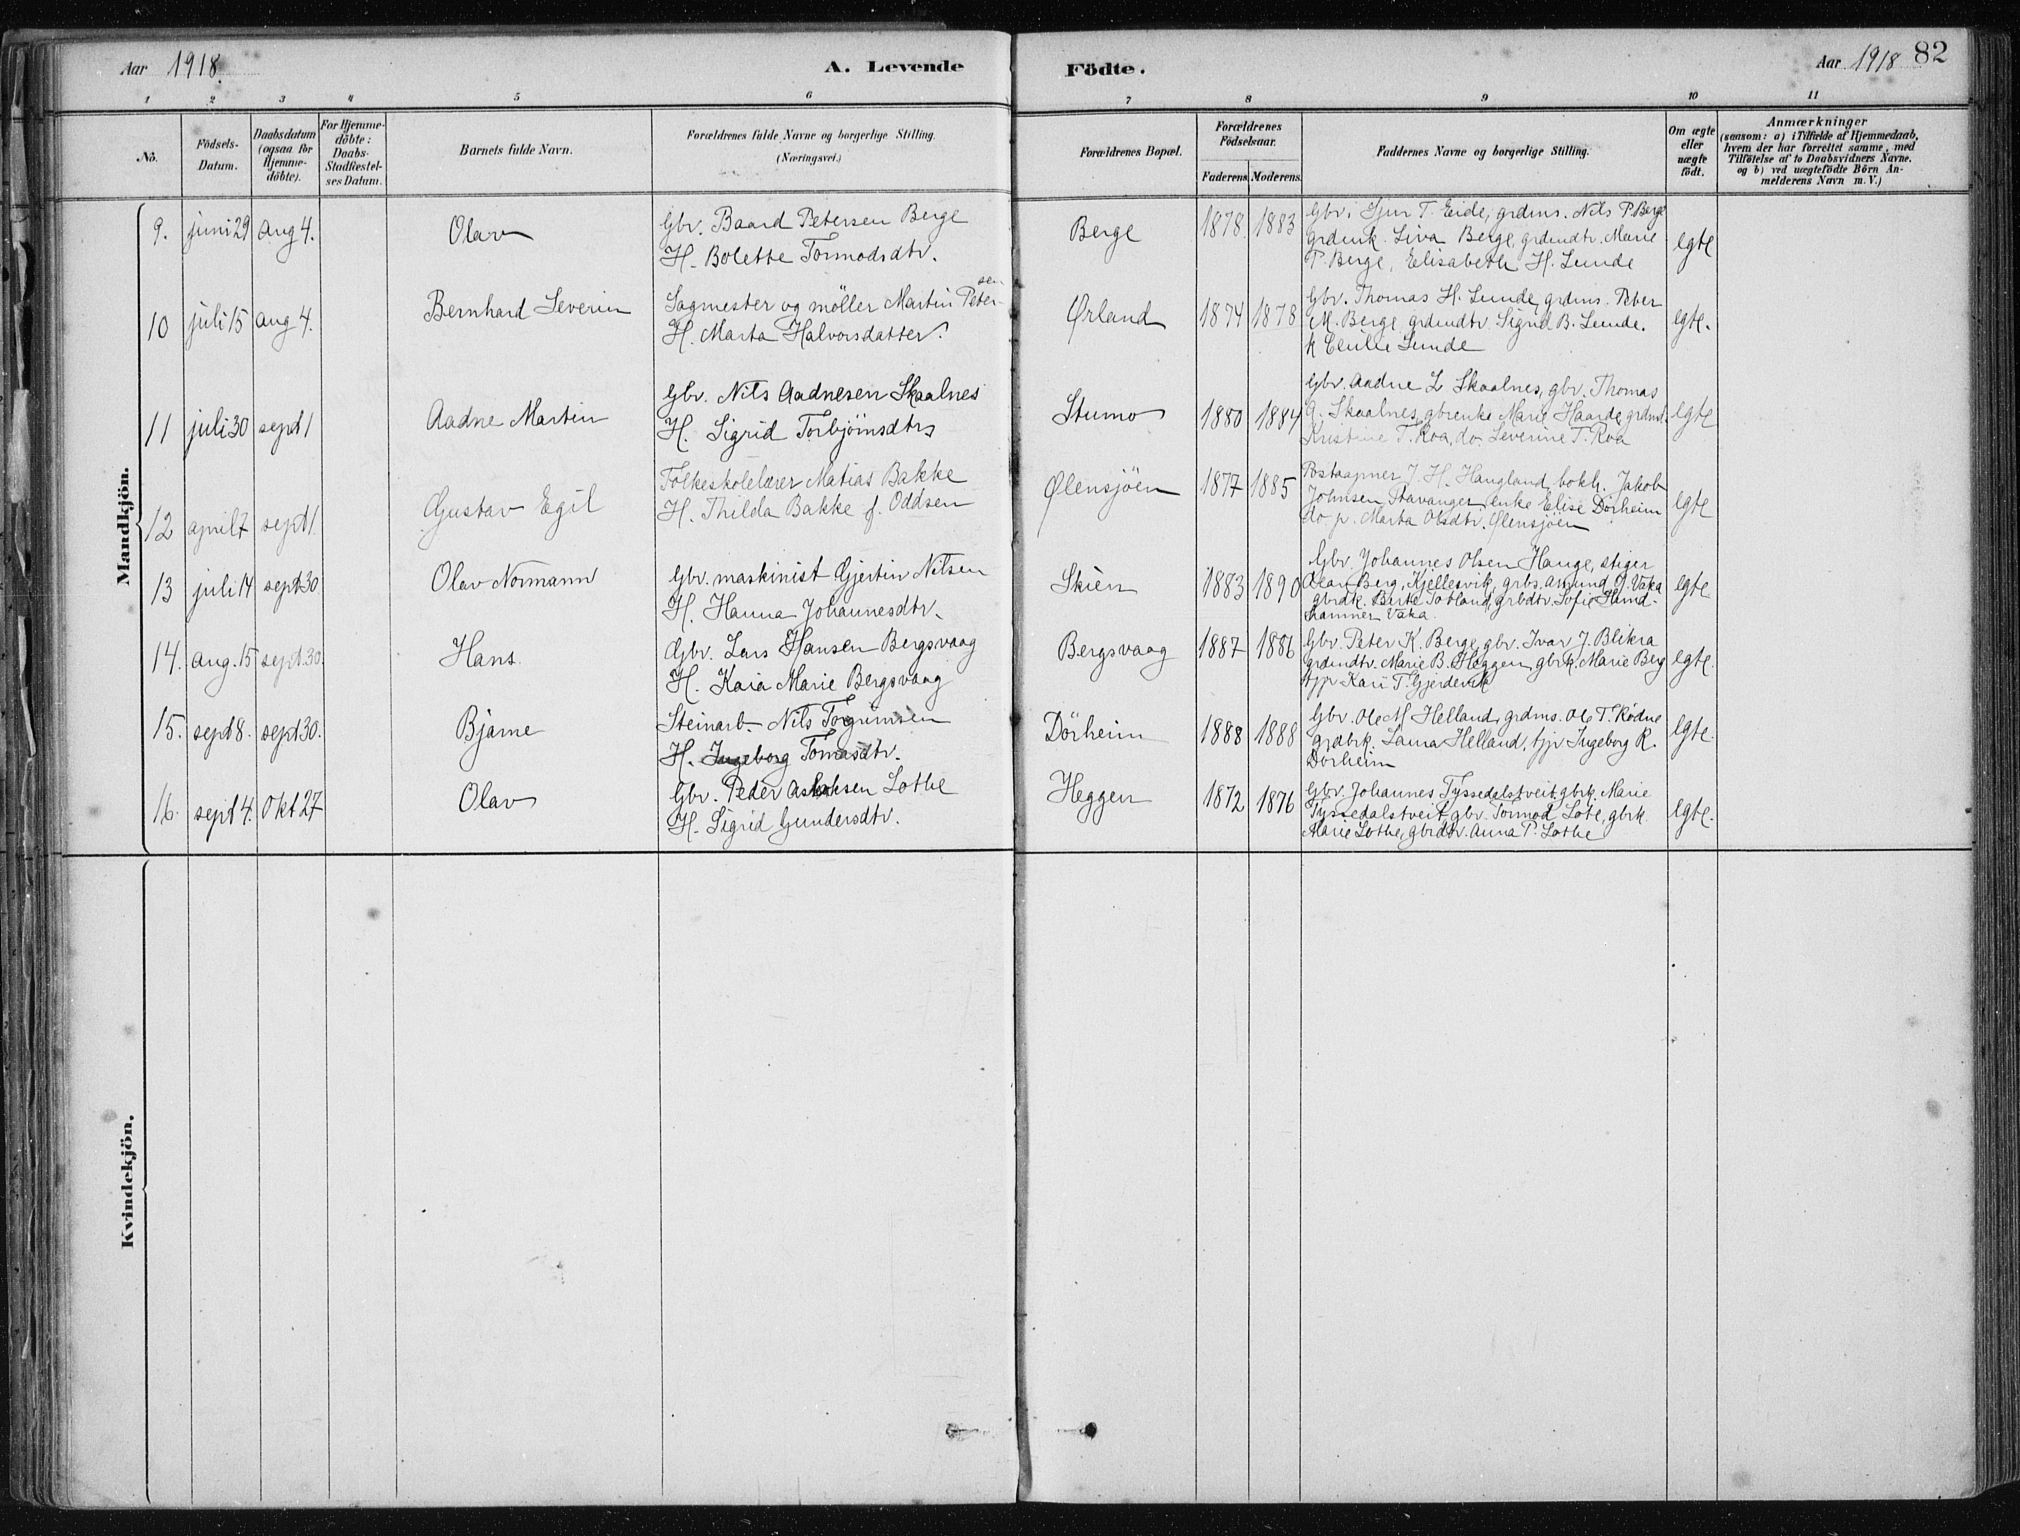 Aar 1918.
A. Levende
Födte.
Aar 1918
82
1 2 3 4 5 6 7 8 9 10 11
No.
Födsels-
Datum.
Daabsdatum
(ogsaa for
Hjemme-
döbte).
For Hjemme-
döbte:
Daabs-
Stadfæstel-
ses Datum.
Barnets fulde Navn.
Forældrenes fulde Navne og borgerlige Stilling.
(Næringsvei.)
Forældrenes Bopæl.
Forældrenes
Födselsaar.
Faderens Moderens
Faddernes Navne og borgerlige Stilling.
Om ægte
eller
uægte
födt.
Anmærkninger
(saasom: a) i Tilfælde af Hjemmedaab,
hvem der har forrettet samme, med
Tilföielse af to Daabsvidners Navne.
og b) ved uægtefödte Börn An-
melderens Navn m. V.)
Mandkjön.
9. juni 29 aug 4. Olav
Gbr. Baard Petersen Berge
H. Bolette Tormodsdtr.
Berge 1878. 1883
Gbr. Sjur T. Eide, grdms. Nils P. Berge
grdenk. Siva Berge, grdmdtr. Marie
P. Berge, Elisabeth H. Lunde
egte
10 juli 15 aug 4. Bernhard Severin
Sagmester og möller Martin Peter-
sen
H. Marta Halvorsdatter.
Ørland 1874 1878
Gbr. Thomas H. Lunde, grdms. Peder
M. Berge, grdmdtr Sigrid B. Lunde.
k Cecilie Lunde
egte.
11 juli 30 sept 1 Aadne Martin
Gbr. Nils Aadnesen Skaalnes
H. Sigrid Torbjörnsdtr
Stumo 1880 1884
Gbr. Aadne L Skaalnes, gbr. Thomas
A. Skaalnes, gbrenke Marie Haarde, grdmd.
Kristine T. Roa, do. Severine T. Roa
egte
12 april 7 sept 1. Gustav Egil
Folkeskolelærer Matias Bakke
H. Thilda Bakke f. Oddsen
Ølensjöen 1877 1885
Postaapner J. H. Haugland, bokh. Jakob
Johnsen, Stavanger, enke Elise Dörheim
do p. Marta Olsdtr. Ølensjöen
egte
13 juli 14 sept 30 Olav Normann
Gbr. maskinist Gjertin Nilsen
H. Hanna Johannesdtr.
Skien 1883 1890
Gbr. Johannes Olsen Hauge, stiger
Olav Berg, Kjellesvik, grbs. Amund O. Vaka
gbrdk. Berte Tobland, grbdtr. Sofie Hand-
hammer Vaka
egte
14. aug. 15 sept 30. Hans
Gbr. Lars Hansen Bergsvaag
H. Kaia Marie Bergsvaag
Bergsvaag 1887 1886
Gbr. Peter K. Berge, gbr. Ivar J. Blikra
grdmdtr. Marie B. Heggen, gbrk. Marie Berg
tjp Kari T. Gjerdevik
egte.
15. sept 8. sept 30. Bjarne
Steinarb. Nils Torgrimsen
H. Ingeborg Tomasdtr.
Dörheim 1888 1888
Gbr. Ole M Helland, grdms. Ole T. Rødne
grdbrk. Laura Helland, tjp Ingeborg R.
Dörheim
egte.
16. sept 4. Okt 27 Olav
Gbr. Peder Aslaksen Lothe
H. Sigrid Gundersdtr.
Heggen 1872 1876
Gbr. Johannes Tyssedalstveit, gbrk. Marie
Tyssedalstveit, gbr. Tormod Lote, gbrk.
Marie Lothe, gbrdtr. Anna P. Lothe
egte.
Kvindekjön.